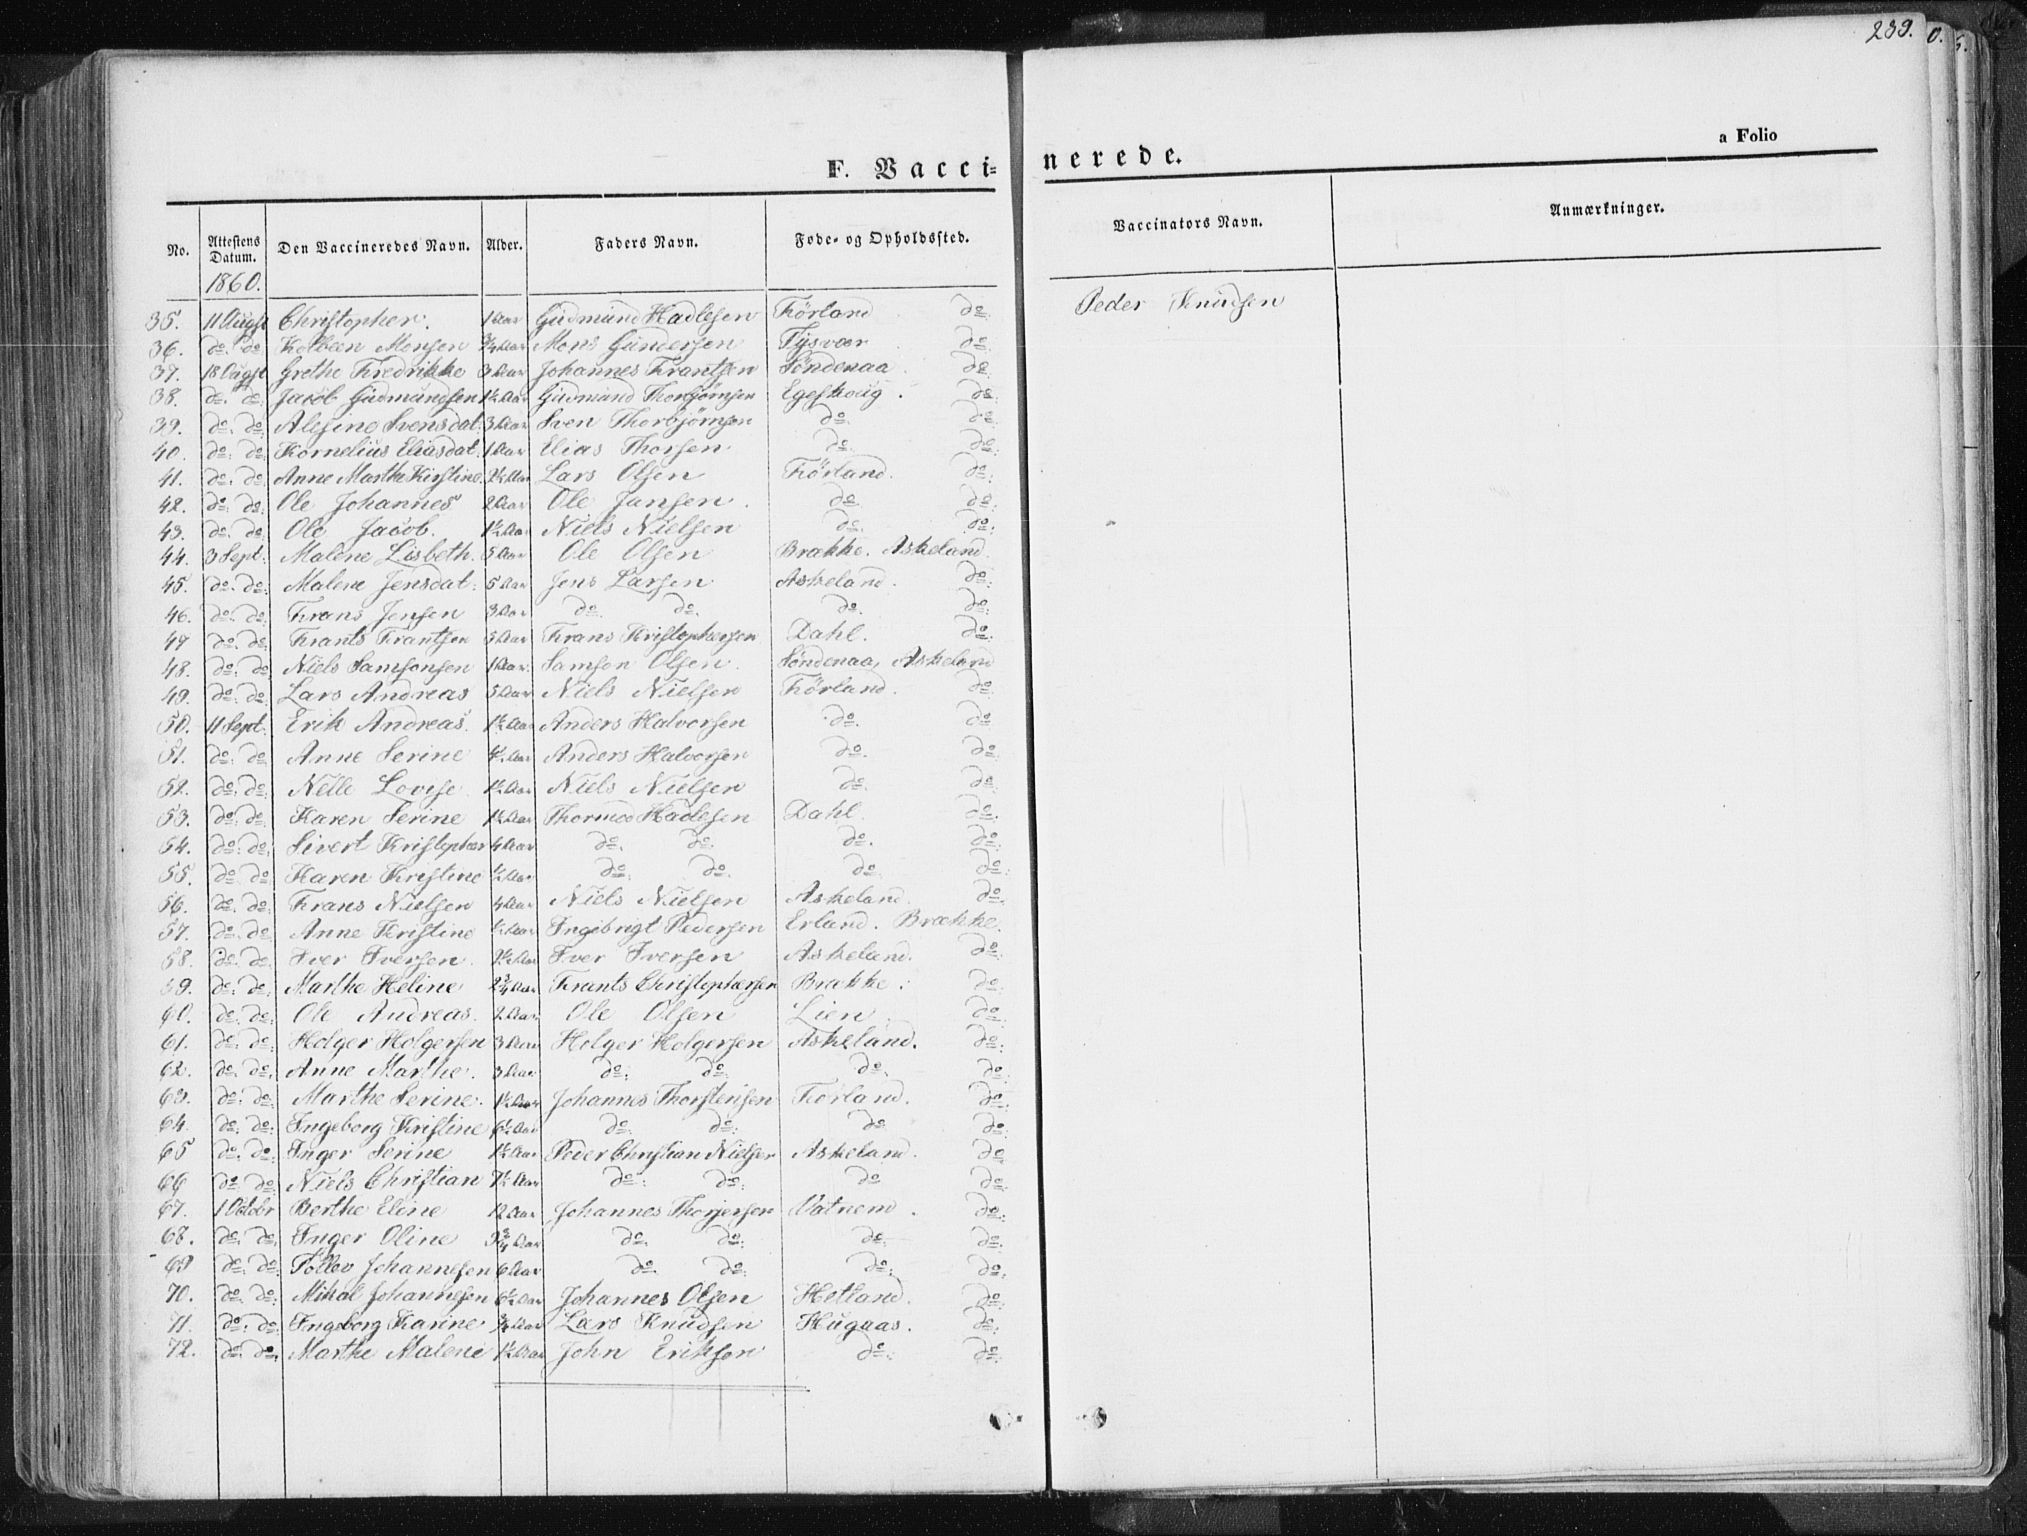 289.
F. Vacci-
nerede.
a Folio
No. Attestens Datum. Den Vaccineredes Navn. Alder. Faders Navn. Føde- og Opholdssted. Vaccinators Navn. Anmærkninger.
1860.
35. 11 Augst Christopher. 1 Aar Gudmund Hadlesen Førland do: Peder Knudsen
36. do. do: Kolbeen Monsen 3/4 Aar Mons Gundersen Tysvær do:
37. 18 Augst Grethe Fredrikke 3 Aar Johannes Frantzen Søndenaa do:
38. do. do: Jacob Gudmundsen 1½ Aar Gudmund Thorbjørnsen Egeskoug. do:
39. do. do: Alesine Svensdat: 3 Aar Sven Thorbjørnsen do. do:
40. do: do: Kornelius Eliasdat. 1 Aar Elias Thorsen do. do:
41. do: do: Anne Marthe Kirstine. 2½ Aar Lars Olsen Førland. do:
42. do: do: Ole Johannes 2 Aar Ole Jansen. do. do:
43. do. do: Ole Jacob. 1½ Aar Niels Nielsen do. do:
44. 3 Sept: Malene Lisbeth. 5 Aar Ole Olsen Brække. Askeland.
45. do: do: Malene Jensdat: 5 Aar Jens Larsen Askeland. do:
46. do: do: Frans Jensen 3 Aar do: do. do. do:
47 do: do: Frants Frantsen 3 Aar Frans Kristophersen Dahl. do:
48. do: do: Niels Samsonsen 1 Aar. Samson Olsen. Søndenaa, Askeland
49. do: do: Lars Andreas 5 Aar Niels Nielsen Førland. do:
50. 11 Sept: Erik Andreas. 1½ Aar Anders Halvorsen do. do:
51. do: do: Anne Serine Aar Anders Halvorsen do. do:
52. do: do: Nelle Lovise 1½ Aar Niels Nielsen do. do:
53. do: do: Karen Serine 1½ Aar Thormod Hadlesen Dahl. do:
54. do: do: Sivert Kristopher 4 Aar do. do. do. do:
55. do: do: Karen Kristine ½ Aar do: do. do. do:
56. do: do: Frans Nielsen 4 Aar Niels Nielsen Askeland. do:
57. do: do: Anne Kristine ½ Aar Ingebrigt Pedersen Erland. Brække.
58. do: do: Iver Iversen. 2½ Aar Iver Iversen Askeland. do:
59. do: do: Marthe Heline 2¾ Aar Frants Christophersen Brække. do:
60. do: do: Ole Andreas. 2 Aar Ole Olsen Lien. do:
61. do: do: Holger Holgersen 3 Aar Holger Holgersen Askeland. do:
62. do: do: Anne Marthe. 3 Aar do: do: do. do:
63. do: do: Marthe Serine. 1½ Aar Johannes Thorstensen Førland. do:
64. do: do: Ingeborg Kristine 6½ Aar do: do: do do:
65 do: do: Inger Serine 1½ Aar Peder Christian Nielsen Askeland. do:
66 do: do: Niels Christian 7½ Aar do: do: do do:
67. 1 Octobr Berthe Eline 12 Aar Johannes Thorjersen Vatnem. do:
68. do: do: Inger Oline Aar do. do: do: do:
69 do: do: Tollev Johannesen 6 Aar do. do: do: do:
70. do: do: Mikal Johannesen 6½ Aar Johannes Olsen Hetland. do:
71. do: do: Ingeborg Karine ¾ Aar Lars Knudsen Hugaas. do:
72. do: do. Marthe Malene 1½ Aar John Eriksen do: do: